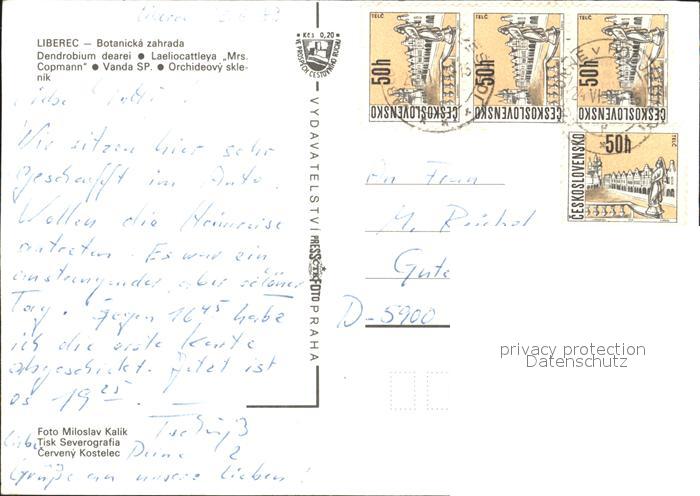 LIBEREC — Botanická zahrada
Dendrobium dearei ● Laeliocattleya „Mrs.
Copmann" ● Vanda SP. ● Orchideový skle-
ník
Kčs 0,20
VE PROSPĚCH CESTOVNÍHO RUCHU
VYDAVATELSTVÍ PRESSFOTO PRAHA
TELČ
50h
ČESKOSLOVENSKO
TELČ
50h
ČESKOSLOVENSKO
TELČ
50h
ČESKOSLOVENSKO
TELČ
50h
ČESKOSLOVENSKO
Wir sitzen hier sehr
geschafft im Auto.
Wollen die Heimreise
antreten. Es war ein
anstrengender, aber schöner
Tag. Gegen 16 45 habe
ich die erste Karte
abgeschickt. Jetzt ist
es 19 25.
Tschüß
Grüße an unsere Lieben!
An Frau
M.
Gute
D-5900
privacy protection
Datenschutz
Foto Miloslav Kalík
Tisk Severografia
Červený Kostelec